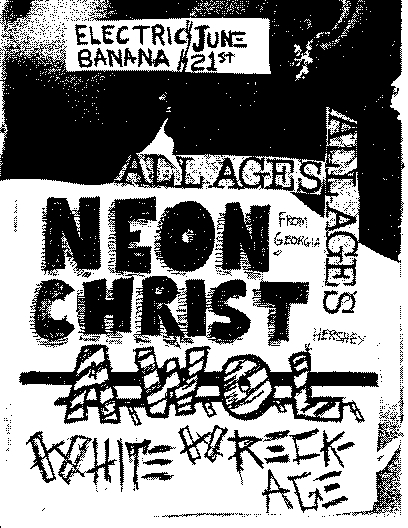 ELECTRIC BANANA
JUNE 21ST
ALL AGES
ALL AGES
NEON
FROM GEORGIA
CHRIST
HERSHEY
A.W.O.L.
WHITE WRECK-
AGE